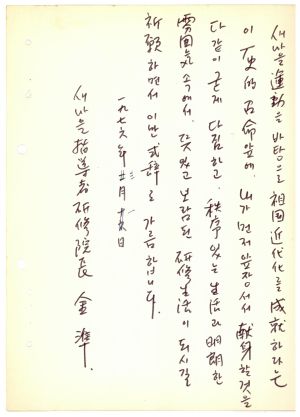 새마을運動을 바탕으로 祖国近代化를 成就하라는
이 歷史的 召命 앞에, 내가 먼저 앞장서서 献身할것을
다같이 굳게 다짐하고, 秩序있는 生活과 明朗한
雰囲氣 속에서, 뜻있고 보람된 研修生活이 되시길
祈願하면서 이만 式辞로 가름합니다.
一九七六年 月 日
새마을指導者研修院長 金 準.